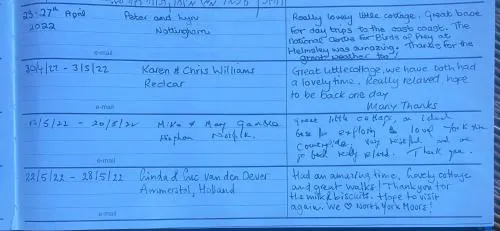 23-27th April
2022
Peter and Lynn
Nottingham
Really lovely little cottage. Great base
for day trips to the east coast. The
national centre for Birds of Prey at
Helmsley was amazing. Thanks for the
great weather too!
e-mail
29/4/22 - 3/5/22
Karen & Chris Williams
Redcar
Great little cottage, we have both had
a lovely time. Really relaxed hope
to be back one day
Many Thanks
e-mail
20/5/22
Mike & May
Norfolk.
Great little cottage, an ideal
base for exploring the lovely Yorkshire
Countryside. Very restful and we
go back really relaxed. Thank you.
e-mail
22/5/22 - 28/5/22
Linda & Luc van den Oever
Ammerstol, Holland
Had an amazing time. Lovely cottage
and great walks! Thank you for
the milk & biscuits. Hope to visit
again. We ♡ North York Moors!
e-mail